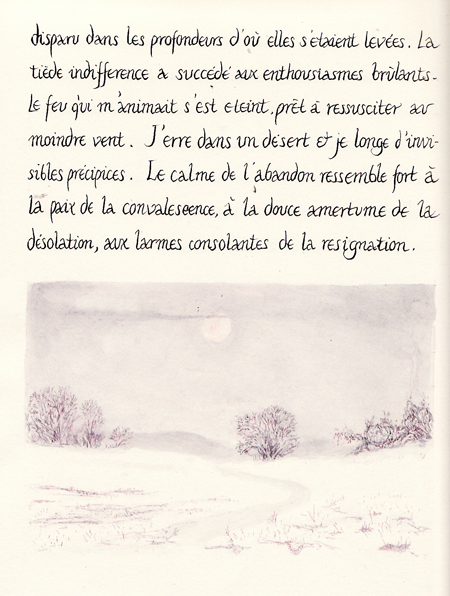 disparu dans les profondeurs d'où elles s'étaient levées. La
tiède indifference a succédé aux enthousiasmes brûlants.
Le feu qui m'animait s'est eteint, prêt à ressusciter au
moindre vent. J'erre dans un désert et je longe d'invi-
sibles précipices. Le calme de l'abandon ressemble fort à
la paix de la convalescence, à la douce amertume de la
désolation, aux larmes consolantes de la resignation.